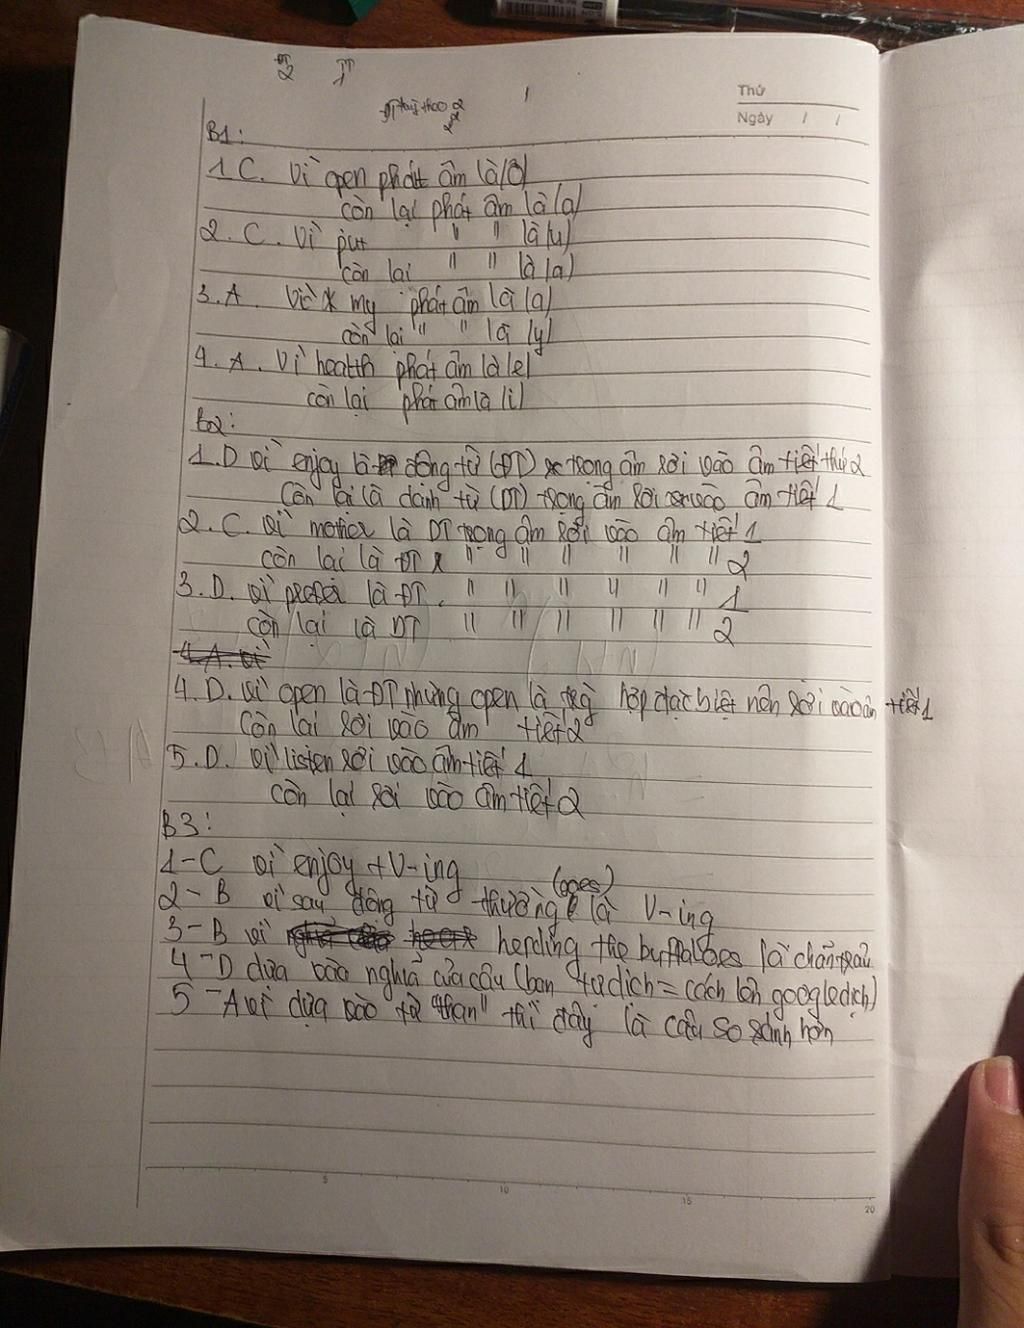 Thứ
Ngày / /
B1:
1 C. Vì open phát âm là /O/
còn lại phát âm là /a/
2. C. Vì put " " là /u/
còn lại " " là /a/
3. A. Vì my phát âm là /a/
còn lại " " là /y/
4. A. Vì health phát âm là /e/
còn lại phát âm là /i/
B2:
1. D vì enjoy là động từ (ĐT) trọng âm rơi vào âm tiết thứ 2
Còn lại là danh từ (DT) trọng âm rơi vào âm tiết 1
2. C. vì là DT trọng âm rơi vào âm tiết 1
còn lại là ĐT " " " " " " 2
3. D. vì là ĐT. " " " " " " 1
còn lại là DT " " " " " " 2
4. A. vì
4. D. vì open là ĐT nhưng open là hợp đặc biệt nên rơi vào âm tiết 1
Còn lại rơi vào âm tiết 2
5. D. vì listen rơi vào âm tiết 1
còn lại rơi vào âm tiết 2
B3:
1-C vì enjoy + V-ing
2- B vì sau động từ thường (goes) là V-ing
3- B vì herding the buffaloes là chăn trâu
4-D dựa vào nghĩa của câu (bạn tự dịch = cách lên google dịch)
5-A vì dựa vào từ "than" thì đây là câu so sánh hơn
5 10 15 20